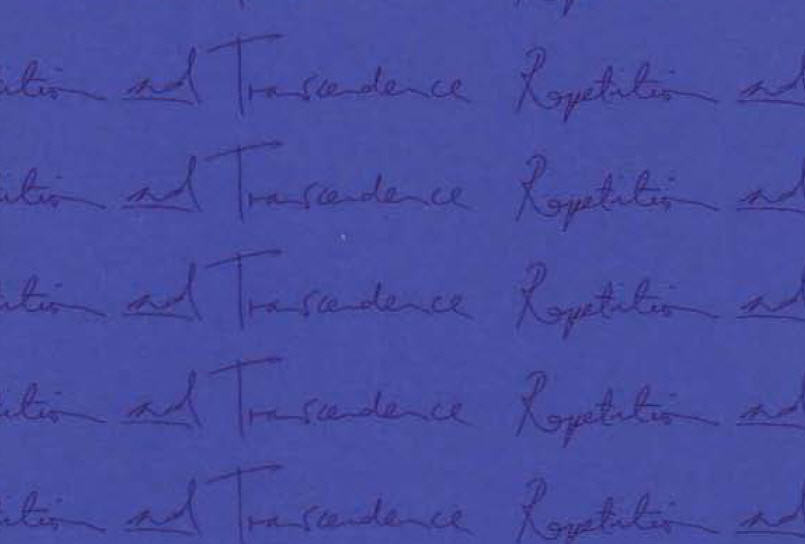 ition and Transcendence Repetition and
ition and Transcendence Repetition and
ition and Transcendence Repetition and
ition and Transcendence Repetition and
ition and Transcendence Repetition and